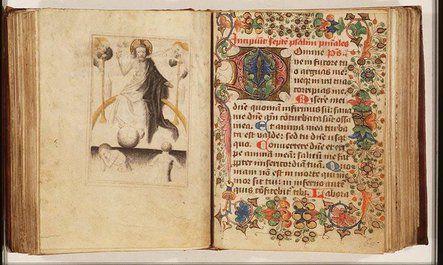 Incipiūt septē psalmi pniales
Domine
ne in furore tu
o arguas me:
neq in ira tua
corripias me.
Misere mei
dnē quoniā infirmus sū: sana
me dnē qm cōturbata sūt ossa
mea Et anima mea turba
ta est valde: sed tu dnē usq
quo. Convertere dnē et eri
pe animā meā: saluū me fac
propter misericordiā tuā. Quo
niam non est in morte qui me
mor sit tui: in inferno autē
quis cōfitebit tibi. Labora